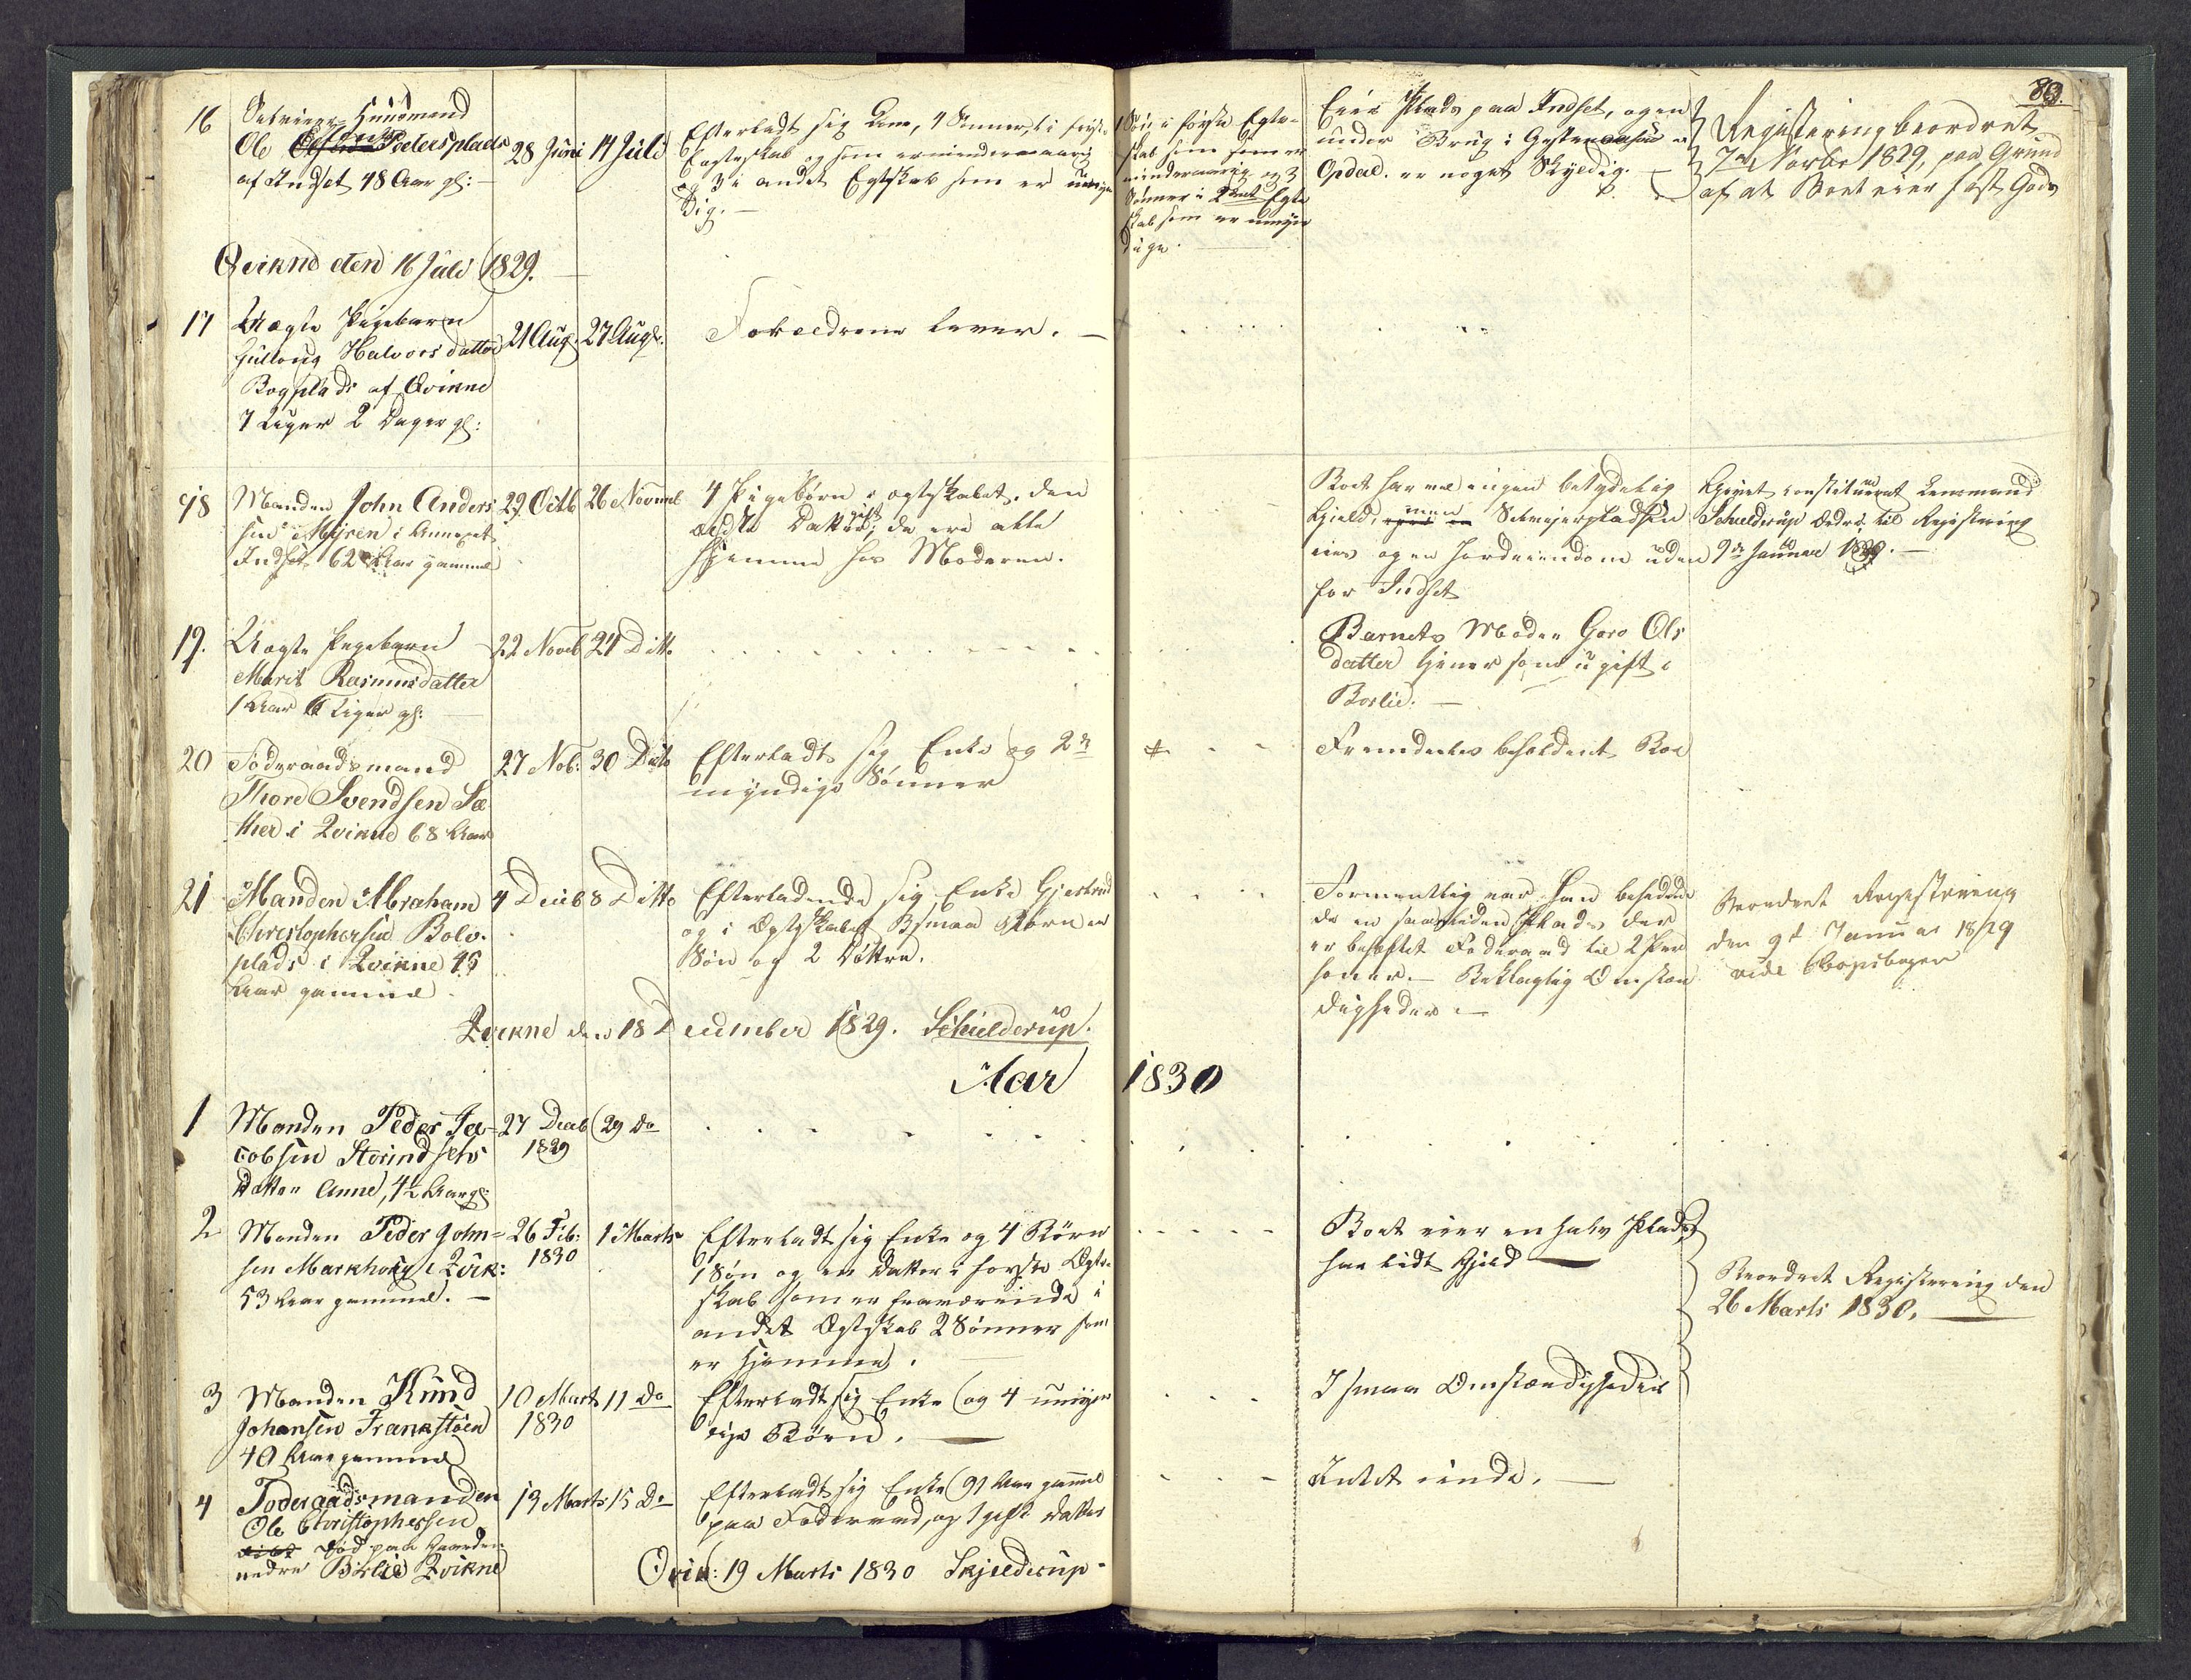 83.
16
Selveier Huusmand
Ole Pedersplads
af Indset 48 Aar gl:
28 Juni
14 Juli
Efterladt sig Kone, 4 Sønner, 1 i første
Egteskab og som er mindreaarig
og 3 i andet Egtskab som er umyn
dig.
1 Søn i første Egte-
skab som er
mindreaarig og 3
Sønner i 2det Egte
skab som er umyn
dige.
Eier Plads paa Indset, og en
under Brug i
Opdal. er noget Skyldig.
Registering beordret
7de Novbr 1829, paa Grund
af at Boet eier fast Gods
Qvikne den 16 Juli 1829.
17
Uægte Pigebarn
Gullaug Halvorsdatter
Bogplads af Qvikne
7 Uger 2 Dager gl:
21 Aug.
27 Aug.
Forældrene lever.
18
Manden John Anders
sen Myren i Annexet
Indset 62 Aar gammel
29. Octb
26 Novemb
4 Pigebørn i egtskabet. den
ældste Datter gift, de ere alle
hjemme hos Moderen.
Boet har vel ingen betydelig
Gjæld, men Selveierpladsen
eies og en Jordeiendom uden
for Indset
Givet constitueret Lensmand
Schielderup Ordre til Registering
9de Januar 1830.
19.
Uægte Pigebarn
Marit Rasmusdatter
1 Aar 6 Uger gl:
22 Novb
24 Ditto
Barnets Moder Goro Ols
datter tjener som ugift i
Borlie.
20
Føderaadsmand
Thore Svendsen Sæ
ther i Qvikne 68 Aar
27 Nob:
30 Ditto
Efterladt sig Enke og 2de
myndige Sønner
Fremdeles beholdent Boe
21
Manden Abraham
Christophersen Bolv.
plads i Qvikne 46
Aar gammel
4 Decb
8 Ditto
Efterladende sig Enke Gjertrud
og i Egtskabet 3 smaa Børn en
Søn og 2 Døttre.
Formentlig var han besiddende
de en saa liden Plads der
er behæftet Føderaad til 2 Per
soner. Beklagelig Omstæn
digheder.
Beordret Registering
den 9d Januar 1829
vide Copibogen
Qvikne den 18 December 1829. Schielderup.
Aar 1830
1
Manden Peder Ja-
cobsen Storindsets
Datter Anne, 4½ Aar gl:
27 Decb
1829
29 Do
2
Manden Peder John=
sen Markhoug i Qvik:
53 Aar gammel.
26 Feb:
1830
1 Marts
Efterladt sig Enke og 4 Børn
1 Søn og en Datter i første Egte
skab som er fraværende i
andet Egtskab 2 Sønner som
er hjemme.
Boet eier en halv Plads
har lidt Gjeld
Beordret Registering den
26 Marts 1830.
3
Manden Knud
Johansen Frankstøen
40 Aar gammel
10 Marts
1830
11 Do
Efterladt sig Enke og 4 umyn
dige Børn.
I smaa Omstændigheder
4
Føderaadsmanden
Ole Christophersen
død paa Gaarden
nedre Borlie Qvikne
13 Marts
15 Do
Efterladt sig Enke 91 Aar gammel
paa Føderaad, og 1 gift Datter
Intet eiende.
Qvik: 19 Marts 1830 Skjelderup